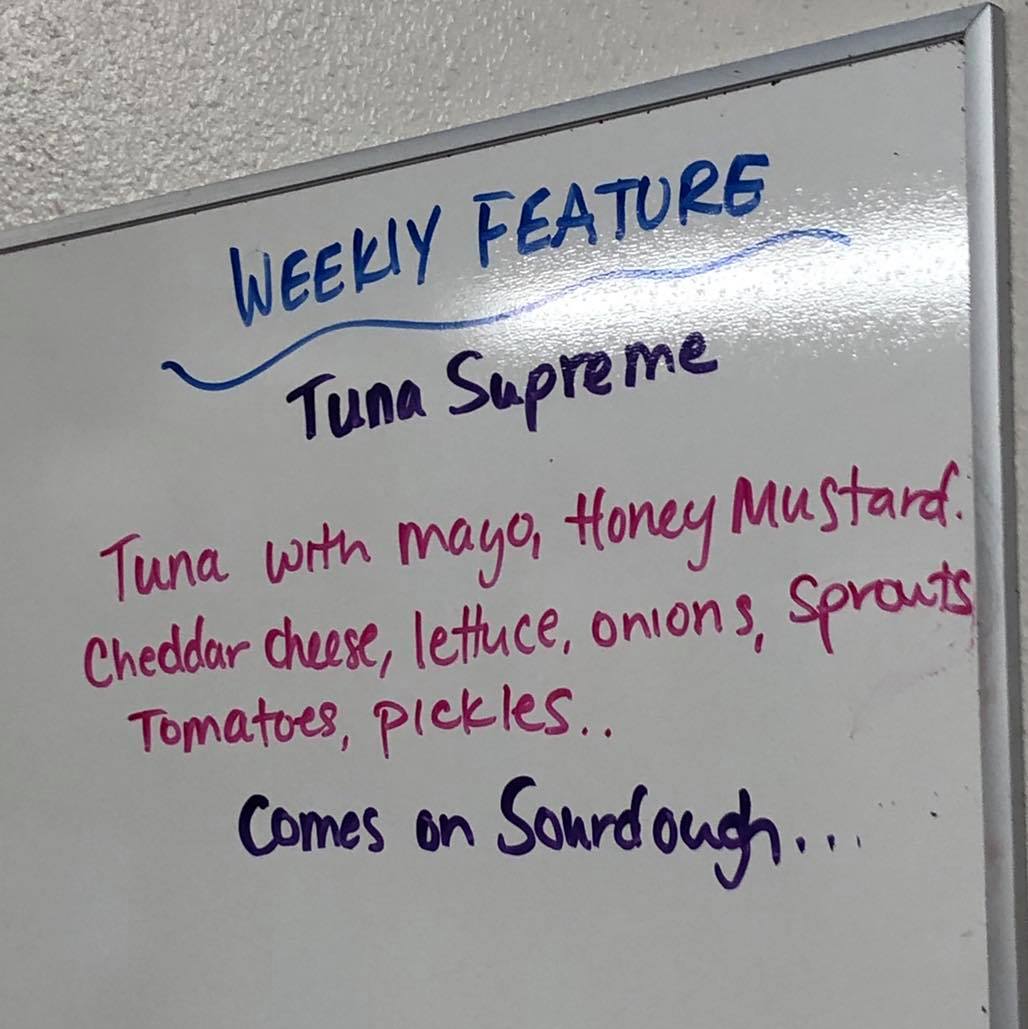 WEEKLY FEATURE
Tuna Supreme
Tuna with mayo, Honey Mustard.
Cheddar cheese, lettuce, onions, Sprouts
Tomatoes, pickles..
Comes on Sourdough...